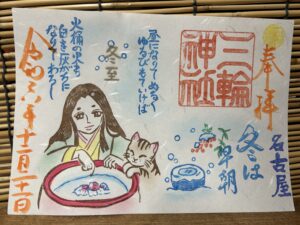 奉拝
名古屋
冬は
早朝
三輪
神社
昼になりてぬるく
ゆるびもていけば
冬至
火桶の火も
白き灰がちに
なりてわろし